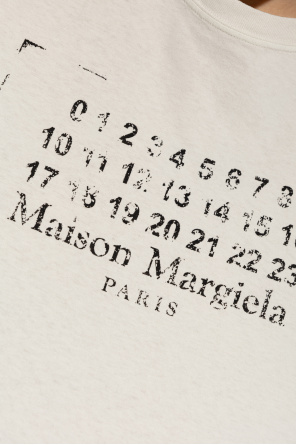 0 1 2 3 4 5 6 7 8
10 11 12 13 14 15
17 18 19 20 21 22 23
Maison Margiela
PARIS